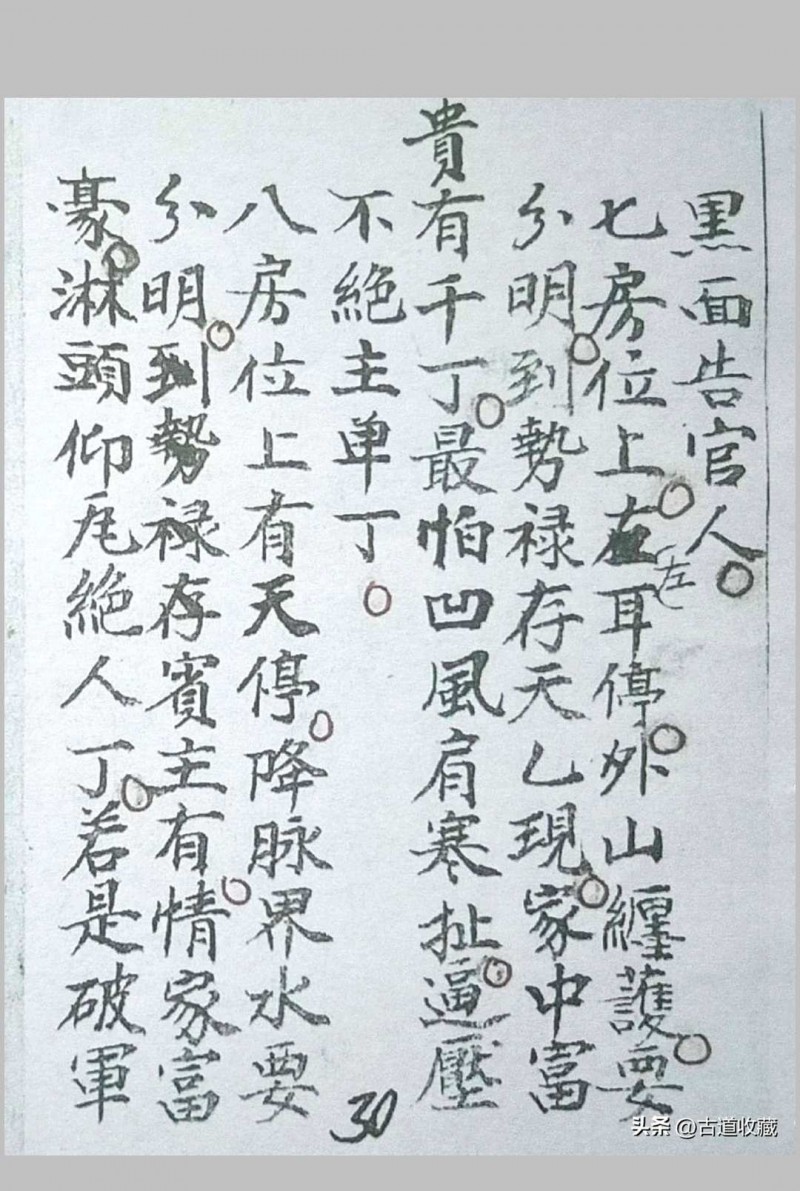 黒面告官人○
七房位上○左耳停○外山纏護○要
左
分明○到勢禄存天乙現○家中富
貴有千丁○最怕凹風肩寒扯○逼壓
不絶主单丁○
八房位上有天停○降脉界水要
分明○到勢禄存賓主有○情家富
豪○淋頭仰瓦絶人丁○若是破軍
30
头条 @古道收藏